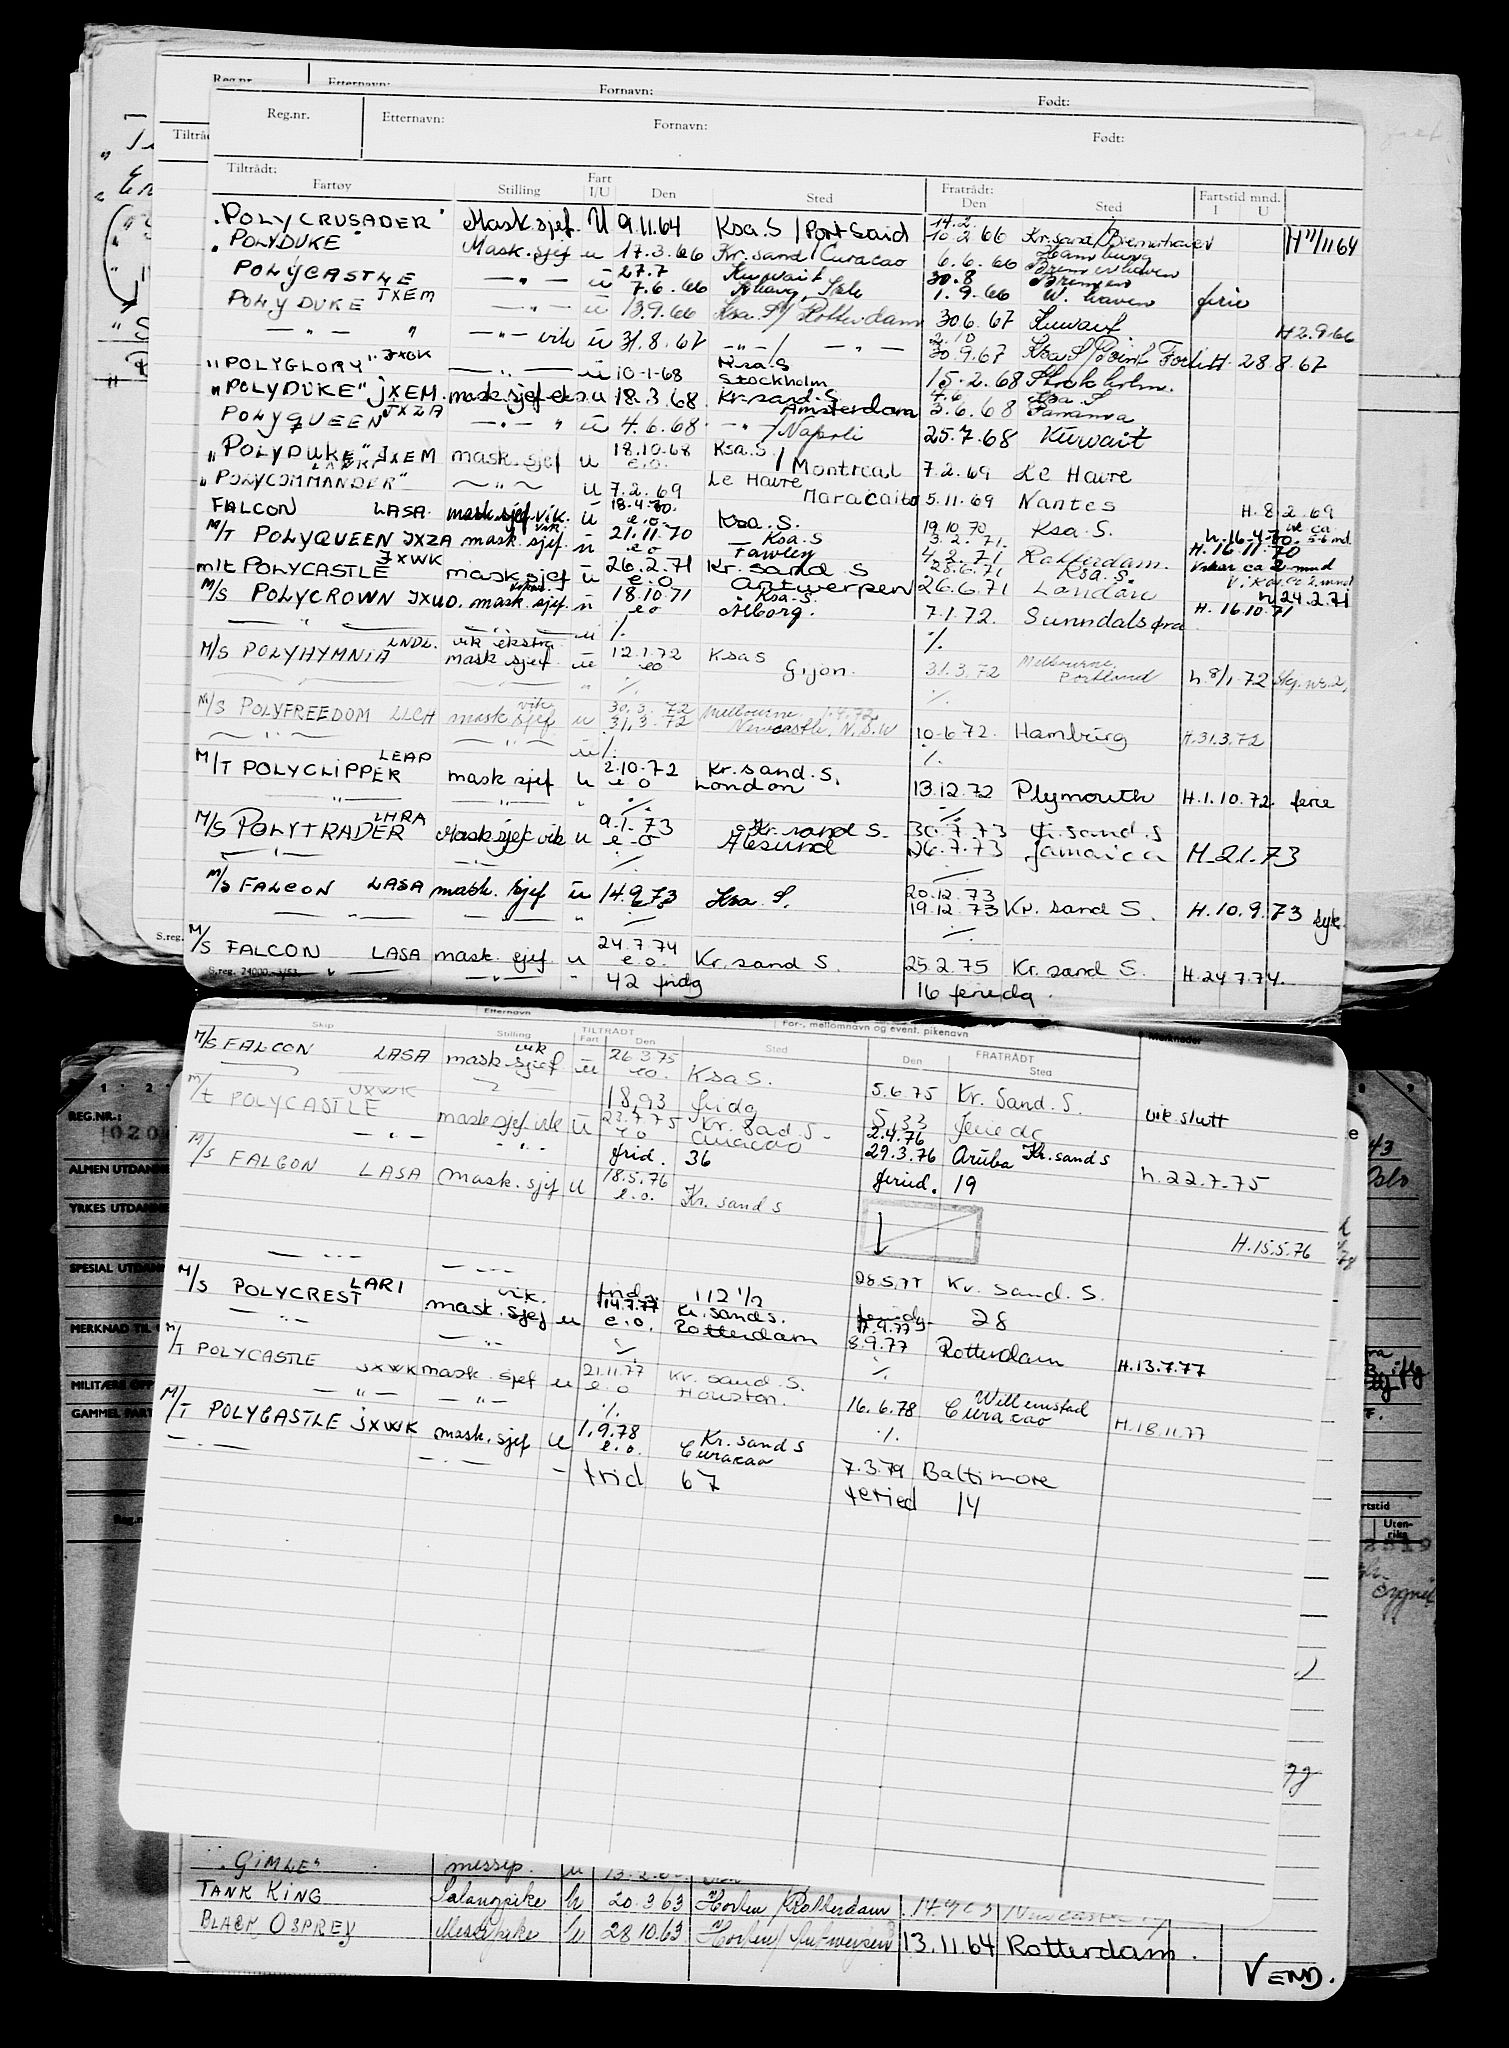 Reg.nr. Etternavn: Fornavn: Født:
Reg.nr. Etternavn: Fornavn: Født:
Tiltrådt: Fratrådt: Fartstid mnd.
Fartøy Stilling Fart I/U Den Sted Den Sted I U
"POLYCRUSADER" Mask.sjef. U 9.11.64 Ksa.S / Port Said 14.2. 10.2.66 Kr.sand/Bremerhaven H 11/11 64
"POLYDUKE" Mask.sjef u 17.3.66 Kr.sand/Curacao 6.6.66 Hamburg
POLYCASTLE —"— u 27.7 7.6.66 Kuwait 30.8 1.9.66 Bremen W.haven ferie
POLYDUKE JXEM —"— u 13.9.66 Ksa.S/Rotterdam 30.6.67 Kuwait H 2.9.66
—"— " —"— vik u 31.8.67 —"—/ —"— 2.10 30.9.67 Ksa.S/Point Fortin H. 28.8.67
"POLYGLORY" JXGK —"— u 10-1-68 Ksa.S Stockholm 15.2.68 Stockholm.
"POLYDUKE" JXEM. mask.sjef eks. u 18.3.68. Kr.sand.S. Amsterdam 4.6 3.6.68 Ksa.S Panama
POLYQUEEN JXZA —"— " u 4.6.68. —"—/Napoli 25.7.68 Kuwait
"POLYDUKE" JXEM mask.sjef u 18.10.68 e.o. Ksa.S. / Montreal 7.2.69 Le Havre
"POLYCOMMANDER" —"— u 7.2.69 Le Havre Maracaibo 5.11.69 Nantes H. 8.2.69
FALCON LASA. mask.sjef.vik. u 18.4.70. e.o. Ksa.S. 19.10.70 Ksa.S. h.16.4.70. vik ca 5-6 md.
M/T POLYQUEEN JXZA mask.sjef. vik. u 21.11.70 e o Ksa.S Fawley 3.2.71. 4.2.71 Rotterdam. H. 16.11.70 Vikar ca 2 mnd
m/t POLYCASTLE JXWK mask.sjef u 26.2.71 e.o Kr.sand S Antwerpen 28.6.71 26.6.71 Ksa.S. London h 24.2.71
M/S POLYCROWN JXUO. mask.sjef. u 18.10.71 e o Ksa.S. Ålborg. 7.1.72. Sunndalsøra H. 16.10.71
—"— vik ekstra u %. %.
M/S POLYHYMNIA LNDL. mask sjef. u 12.1.72 eo KsaS Gijon. 31.3.72 Melbourne, Portland h.8/1.72
" %. %.
M/S POLYFREEDOM LLCH mask.sjef vik u 30.3.72 31.3.72 Melbourne 1.4.72 Newcastle, N.S.W 10.6.72. Hamburg H.31.3.72
—"— —"— u %. %.
M/T POLYCLIPPER LEAP mask sjef u 2.10.72 e o Kr.sand.S. London 13.12.72 Plymouth H.1.10.72. ferie
—"— —"— " %. %.
M/S POLYTRADER LHRA Mask.sjef vik u 9.1.73 e.o Kr.sand S. Ålesund 30.7.73 26.7.73 Kr.sand.S Jamaica H.2.1.73
—"— —"— %. %.
M/S FALCON LASA mask. sjef u 14.9.73 e.o. Ksa.S. 20.12.73 19.12.73 Kr. sand S. H.10.9.73 syk.
—"— —"— " %. %.
M/S FALCON LASA mask. sjef. u 24.7.74 e.o. Kr.sand S. 25.2.75 Kr. sand S. H.24.7.74.
S.reg. 24000. " —"— " 42 fridg 16 feriedg.
Etternavn For-, mellomnavn og event. pikenavn
Skip Stilling TILTRÅDT Fart Den Sted FRATRÅDT Den Sted Merknader
M/S FALCON LASA mask.sjef vik u 26.3.75 eo. KsaS. 5.6.75 Kr. Sand.S. vik.slutt
18,93 fridg 5,33 feriedg
M/t POLYCASTLE JXWK mask.sjef vik u 23.7.75 e o Kr.Sand.S- Curacao 2.4.76 29.3.76 Aruba Kr.sand s h.22.7.75
—"— " frid. 36 feried. 19
M/S FALCON LASA mask.sjef u 18.5.76 e.o. Kr.sand s H.15.5.76
—"— —"— frid. 112 1/2 28.5.77 Kr. sand.S.
M/S POLYCREST LARI mask.sjef vik. u 14.7.77 e.o. Kr.sand s. Rotterdam 8.9.77 Rotterdam H.13.7.77
28
—"— —"— %. %.
M/T POLYCASTLE JXWK mask.sjef u 21.11.77 e.o Kr.sand.S. Houston. 16.6.78 Willemstad Curacao H.18.11.77
—"— —"— %. %.
M/T POLYCASTLE JXWK mask.sjef u 1.9.78 e.o. Kr.sand s Curacao 7.3.79 Baltimore
—"— —"— - frid 67 feried 14
REG.NR.:
ALMEN UTDANN
YRKES UTDANN
SPESIAL UTDAN
MERKNAD TIL
MILITÆRE OPP
GAMMEL FART
Oslo
Uten-riks
"GIMLE" messep. u
TANK KING Salongpike u 20.3.63 Horten/Rotterdam
BLACK OSPREY Messepike u 28.10.63 Horten/Antwerpen 13.11.64 Rotterdam.
VEND.